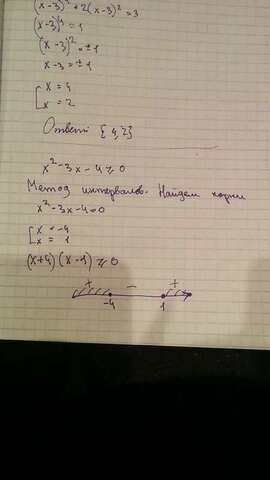 (x-3)⁴+2(x-3)²=3
(x-3)⁴=1
(x-3)²=±1
x-3=±1
[x=4
x=2
Ответ {4,2}
x²-3x-4≥0
Метод интервалов. Найдем корни
x²-3x-4=0
[x=-4
x=1
(x+4)(x-1)≥0
+ - +
-4 1